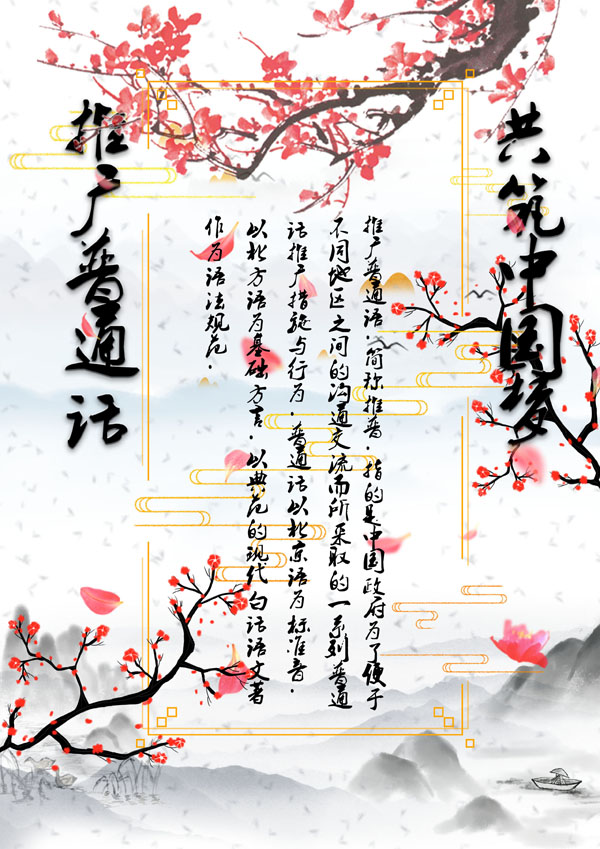 共筑中国梦
推广普通语.简称推普.指的是中国政府为了便于
不同地区之间的沟通交流而所采取的一系列普通
话推广措施与行为.普通话以北京语为标准音.
以北方语为基础方言.以典范的现代白话语文著
作为语法规范.
推广普通话